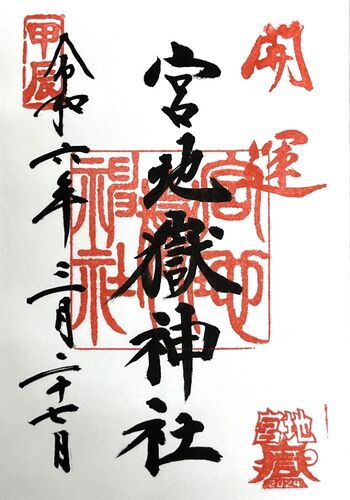 開運
宮地嶽神社
宮地嶽神社
甲辰
令和六年三月二十七日
宮地
嶽
2024